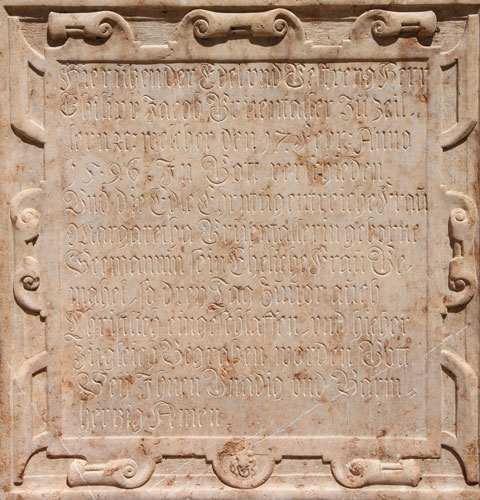 Hie ruhen der Edel vnd Gestreng Herr
Jacob Grientaller zu Zeil=
lern welcher den 17 Febr: Anno
1596 In Gott verschieden.
Vnd die Edle Ehrntugentreiche Frau
Margaretha Grüentallerin geborne
sein Eheliche Frau Ge=
mahel, so drey Tag Zuuor auch
Christlich eingeschlaffen, vnd hieher
Zugleich Begraben worden Gott
Wey Ihnen Gnadig vnd Barm=
hertzig Amen